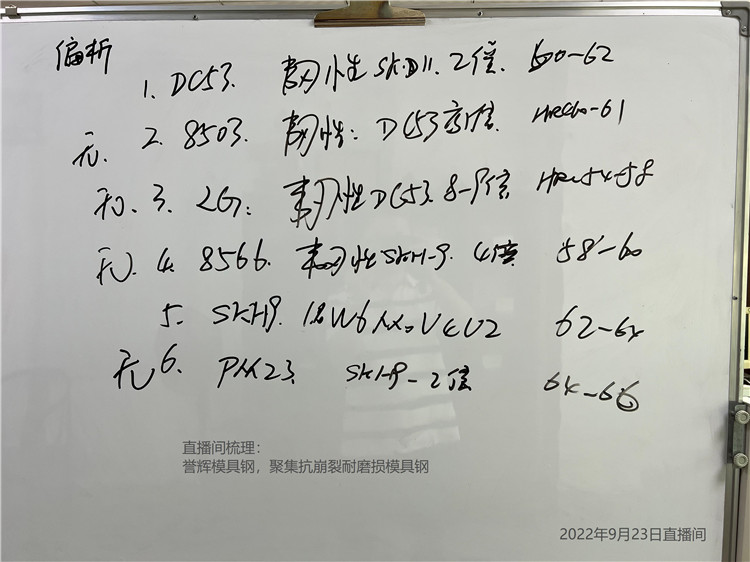 偏析
1. DC53. 韧性SKD11. 2倍. 60-62
无. 2. 8503. 韧性: DC53 HRC60-61
无. 3. 2G: 韧性DC53. 8-9倍 HRC54-58
无. 4. 8566. 韧性SKH-9. 4倍 58-60
5. SKH9. 62-64
无 6. PM23. SKH9-2倍 64-66
直播间梳理:
誉辉模具钢，聚集抗崩裂耐磨损模具钢
2022年9月23日直播间